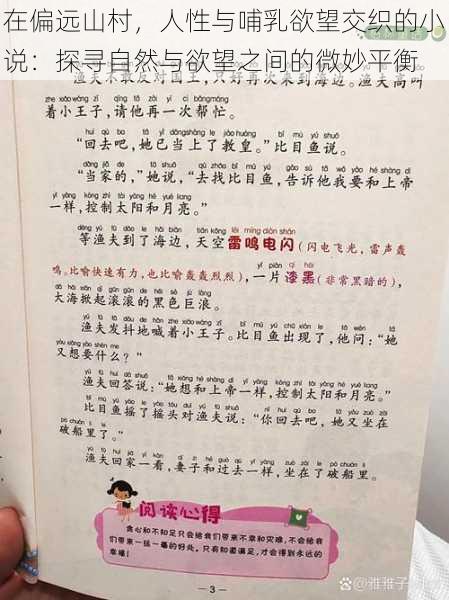 在偏远山村，人性与哺乳欲望交织的小
说：探寻自然与欲望之间的微妙平衡
渔夫不敢反对国王，只好再次来到海边。渔夫高叫
着小王子，请他再一次帮忙。
“回去吧，她已当上了教皇。”比目鱼说。
“当家的，”她说，“去找比目鱼，告诉他我要和上帝
一样，控制太阳和月亮。”
等渔夫到了海边，天空雷鸣电闪(闪电飞光，雷声轰
鸣。比喻快速有力，也比喻轰轰烈烈)，一片漆黑(非常黑暗的)，
大海掀起滚滚的黑色巨浪。
渔夫发抖地喊着小王子。比目鱼出现了，他问：“她
又想要什么？”
渔夫回答说：“她想和上帝一样，控制太阳和月亮。”
比目鱼摇了摇头对渔夫说：“你回去吧，她又坐在
破船里了。”
渔夫回家一看，妻子和过去一样，坐在了破船里。
阅读心得
贪心和不知足只会给我们带来不幸和灾难，不会给我
们带来一丝一毫的好处。只有知道满足，才会得到永远的
幸福！
3